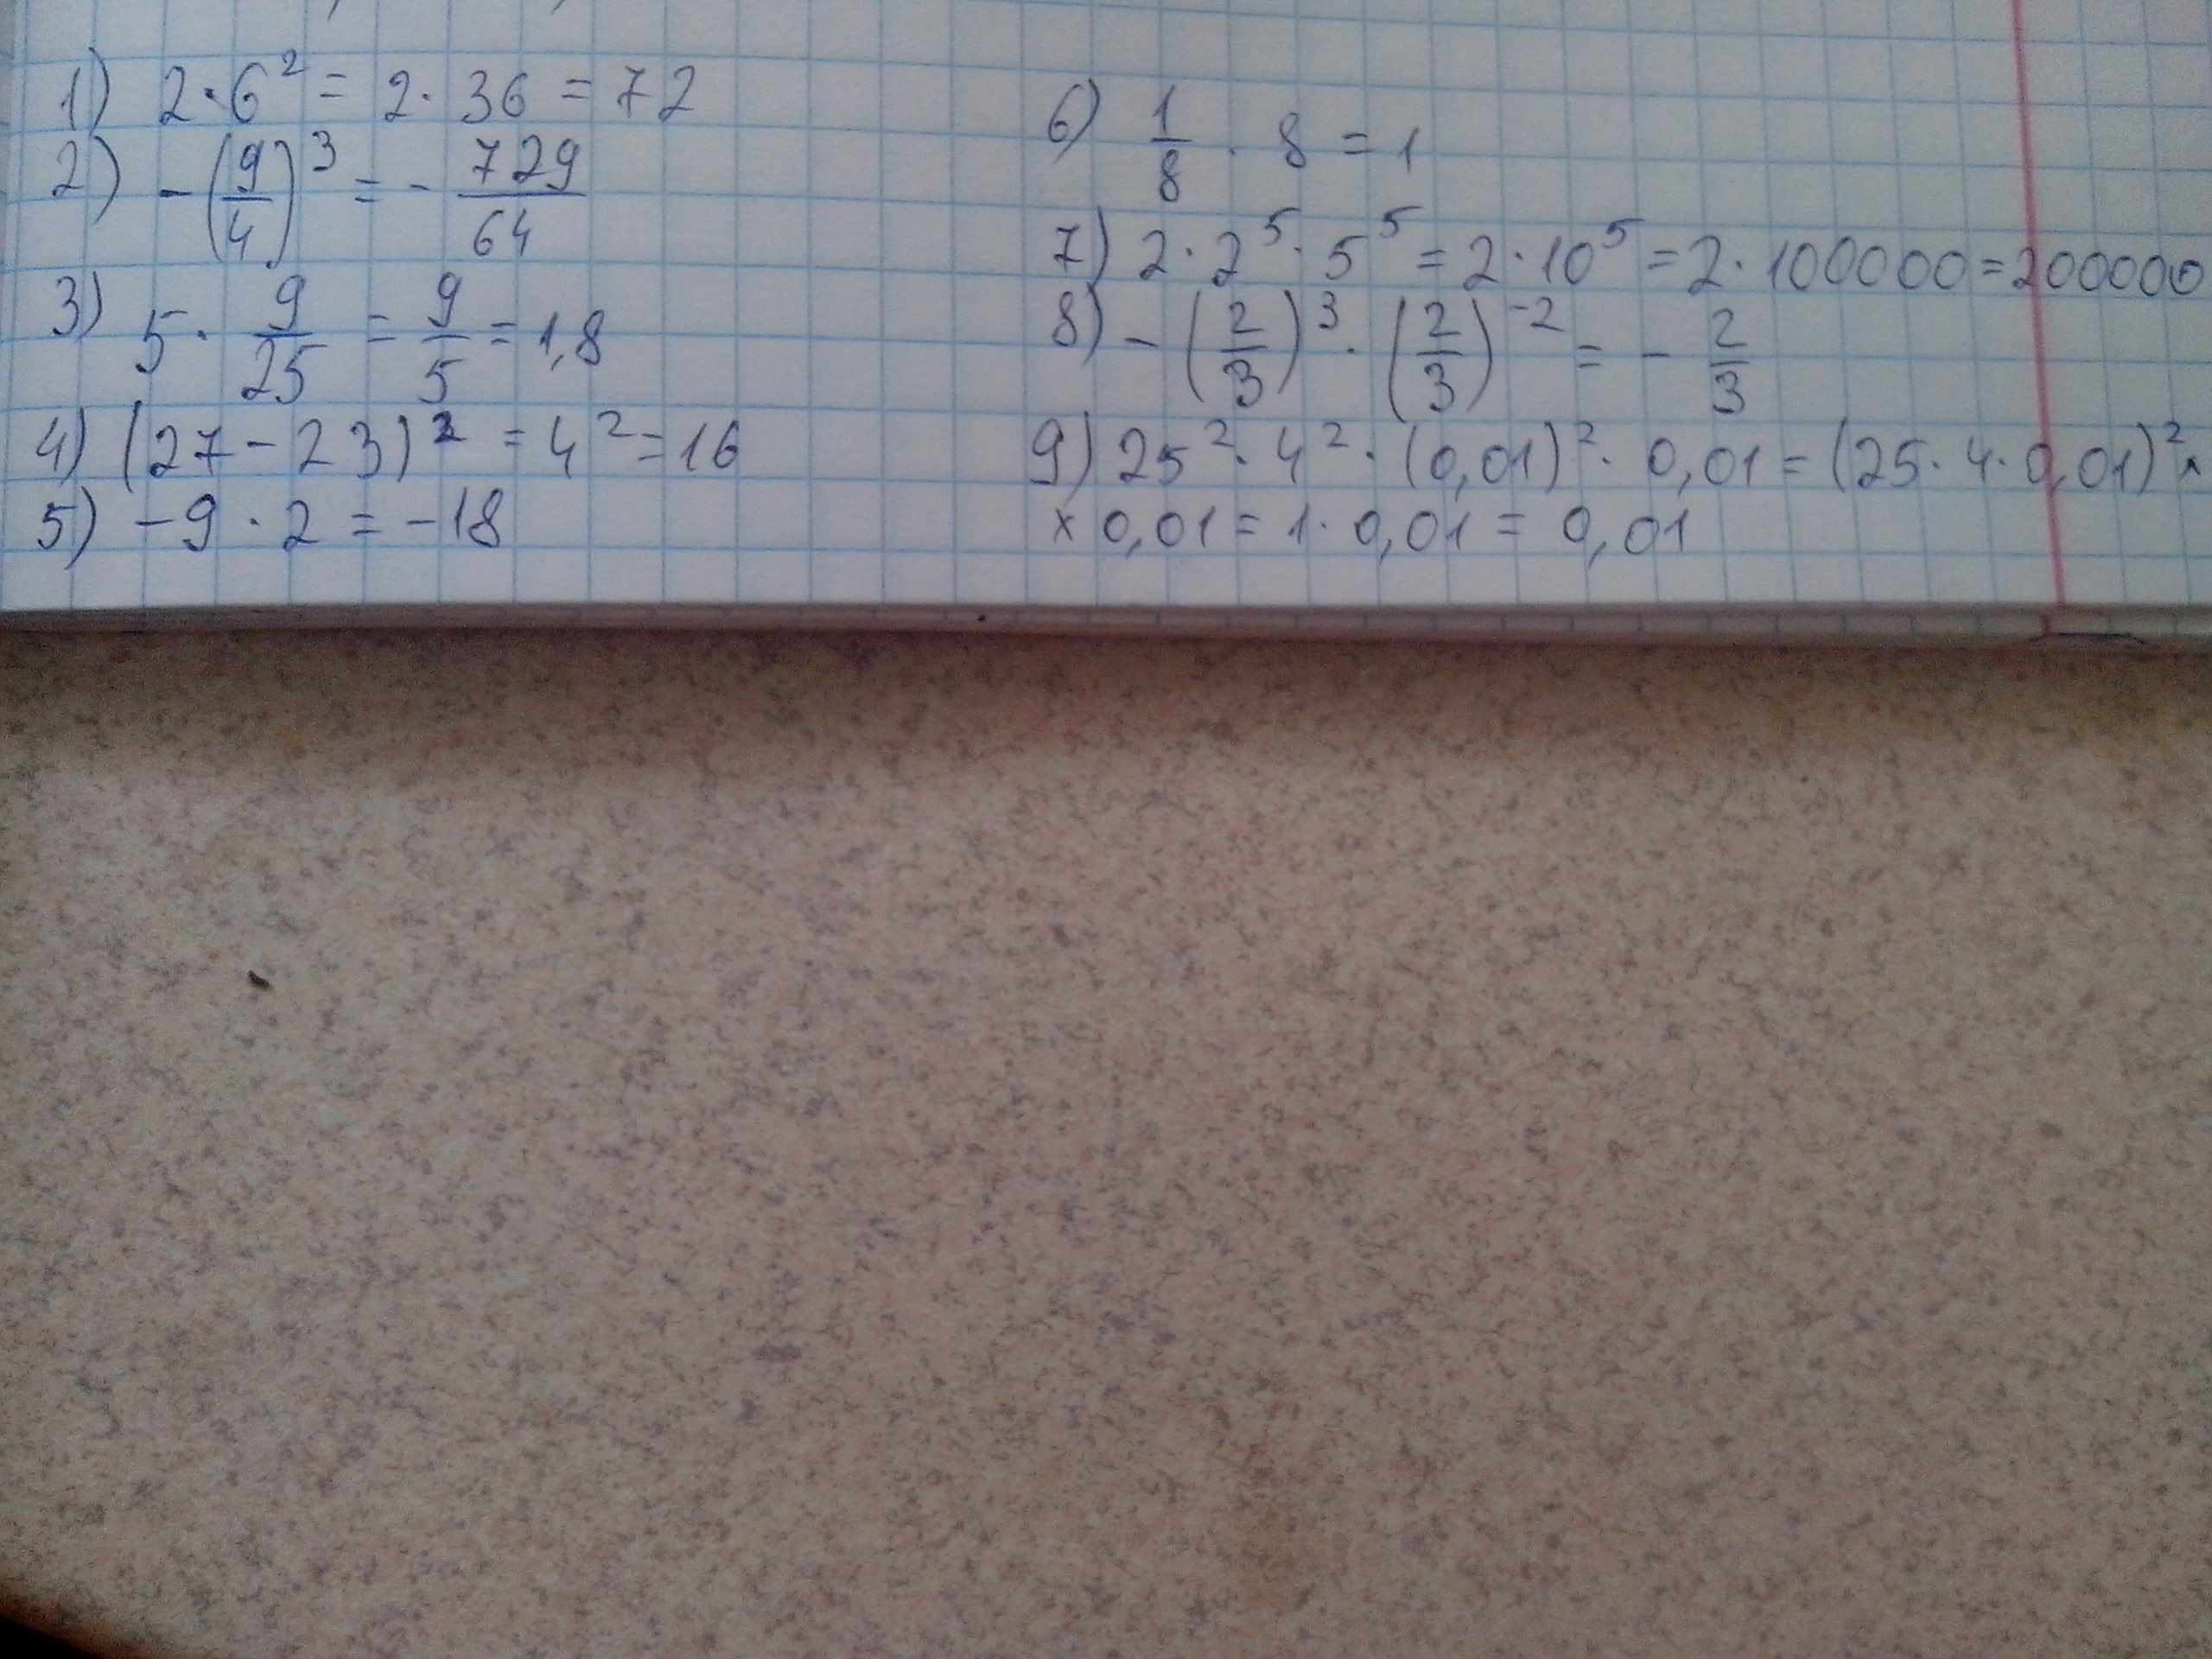 1) 2·6² = 2·36 = 72
2) -(9/4)³ = -729/64
3) 5·9/25 = 9/5 = 1,8
4) (27-23)² = 4² = 16
5) -9·2 = -18
6) 1/8·8 = 1
7) 2·2⁵·5⁵ = 2·10⁵ = 2·100000 = 200000
8) -(2/3)³·(2/3)⁻² = -2/3
9) 25²·4²·(0,01)²·0,01 = (25·4·0,01)² ×
× 0,01 = 1·0,01 = 0,01